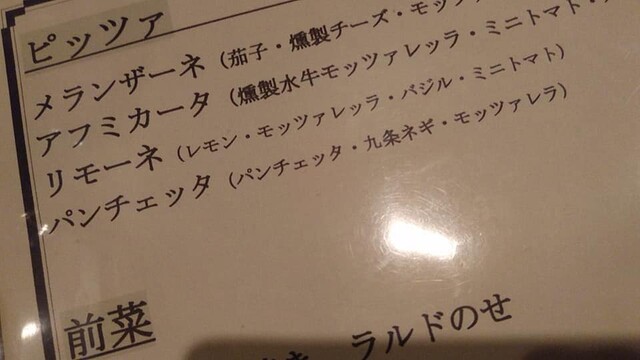 ピッツァ
メランザーネ（茄子・燻製チーズ・モッツァ
アフミカータ（燻製水牛モッツァレッラ・ミニトマト・
リモーネ（レモン・モッツァレッラ・バジル・ミニトマト）
パンチェッタ（パンチェッタ・九条ネギ・モッツァレラ）
前菜
ラルドのせ